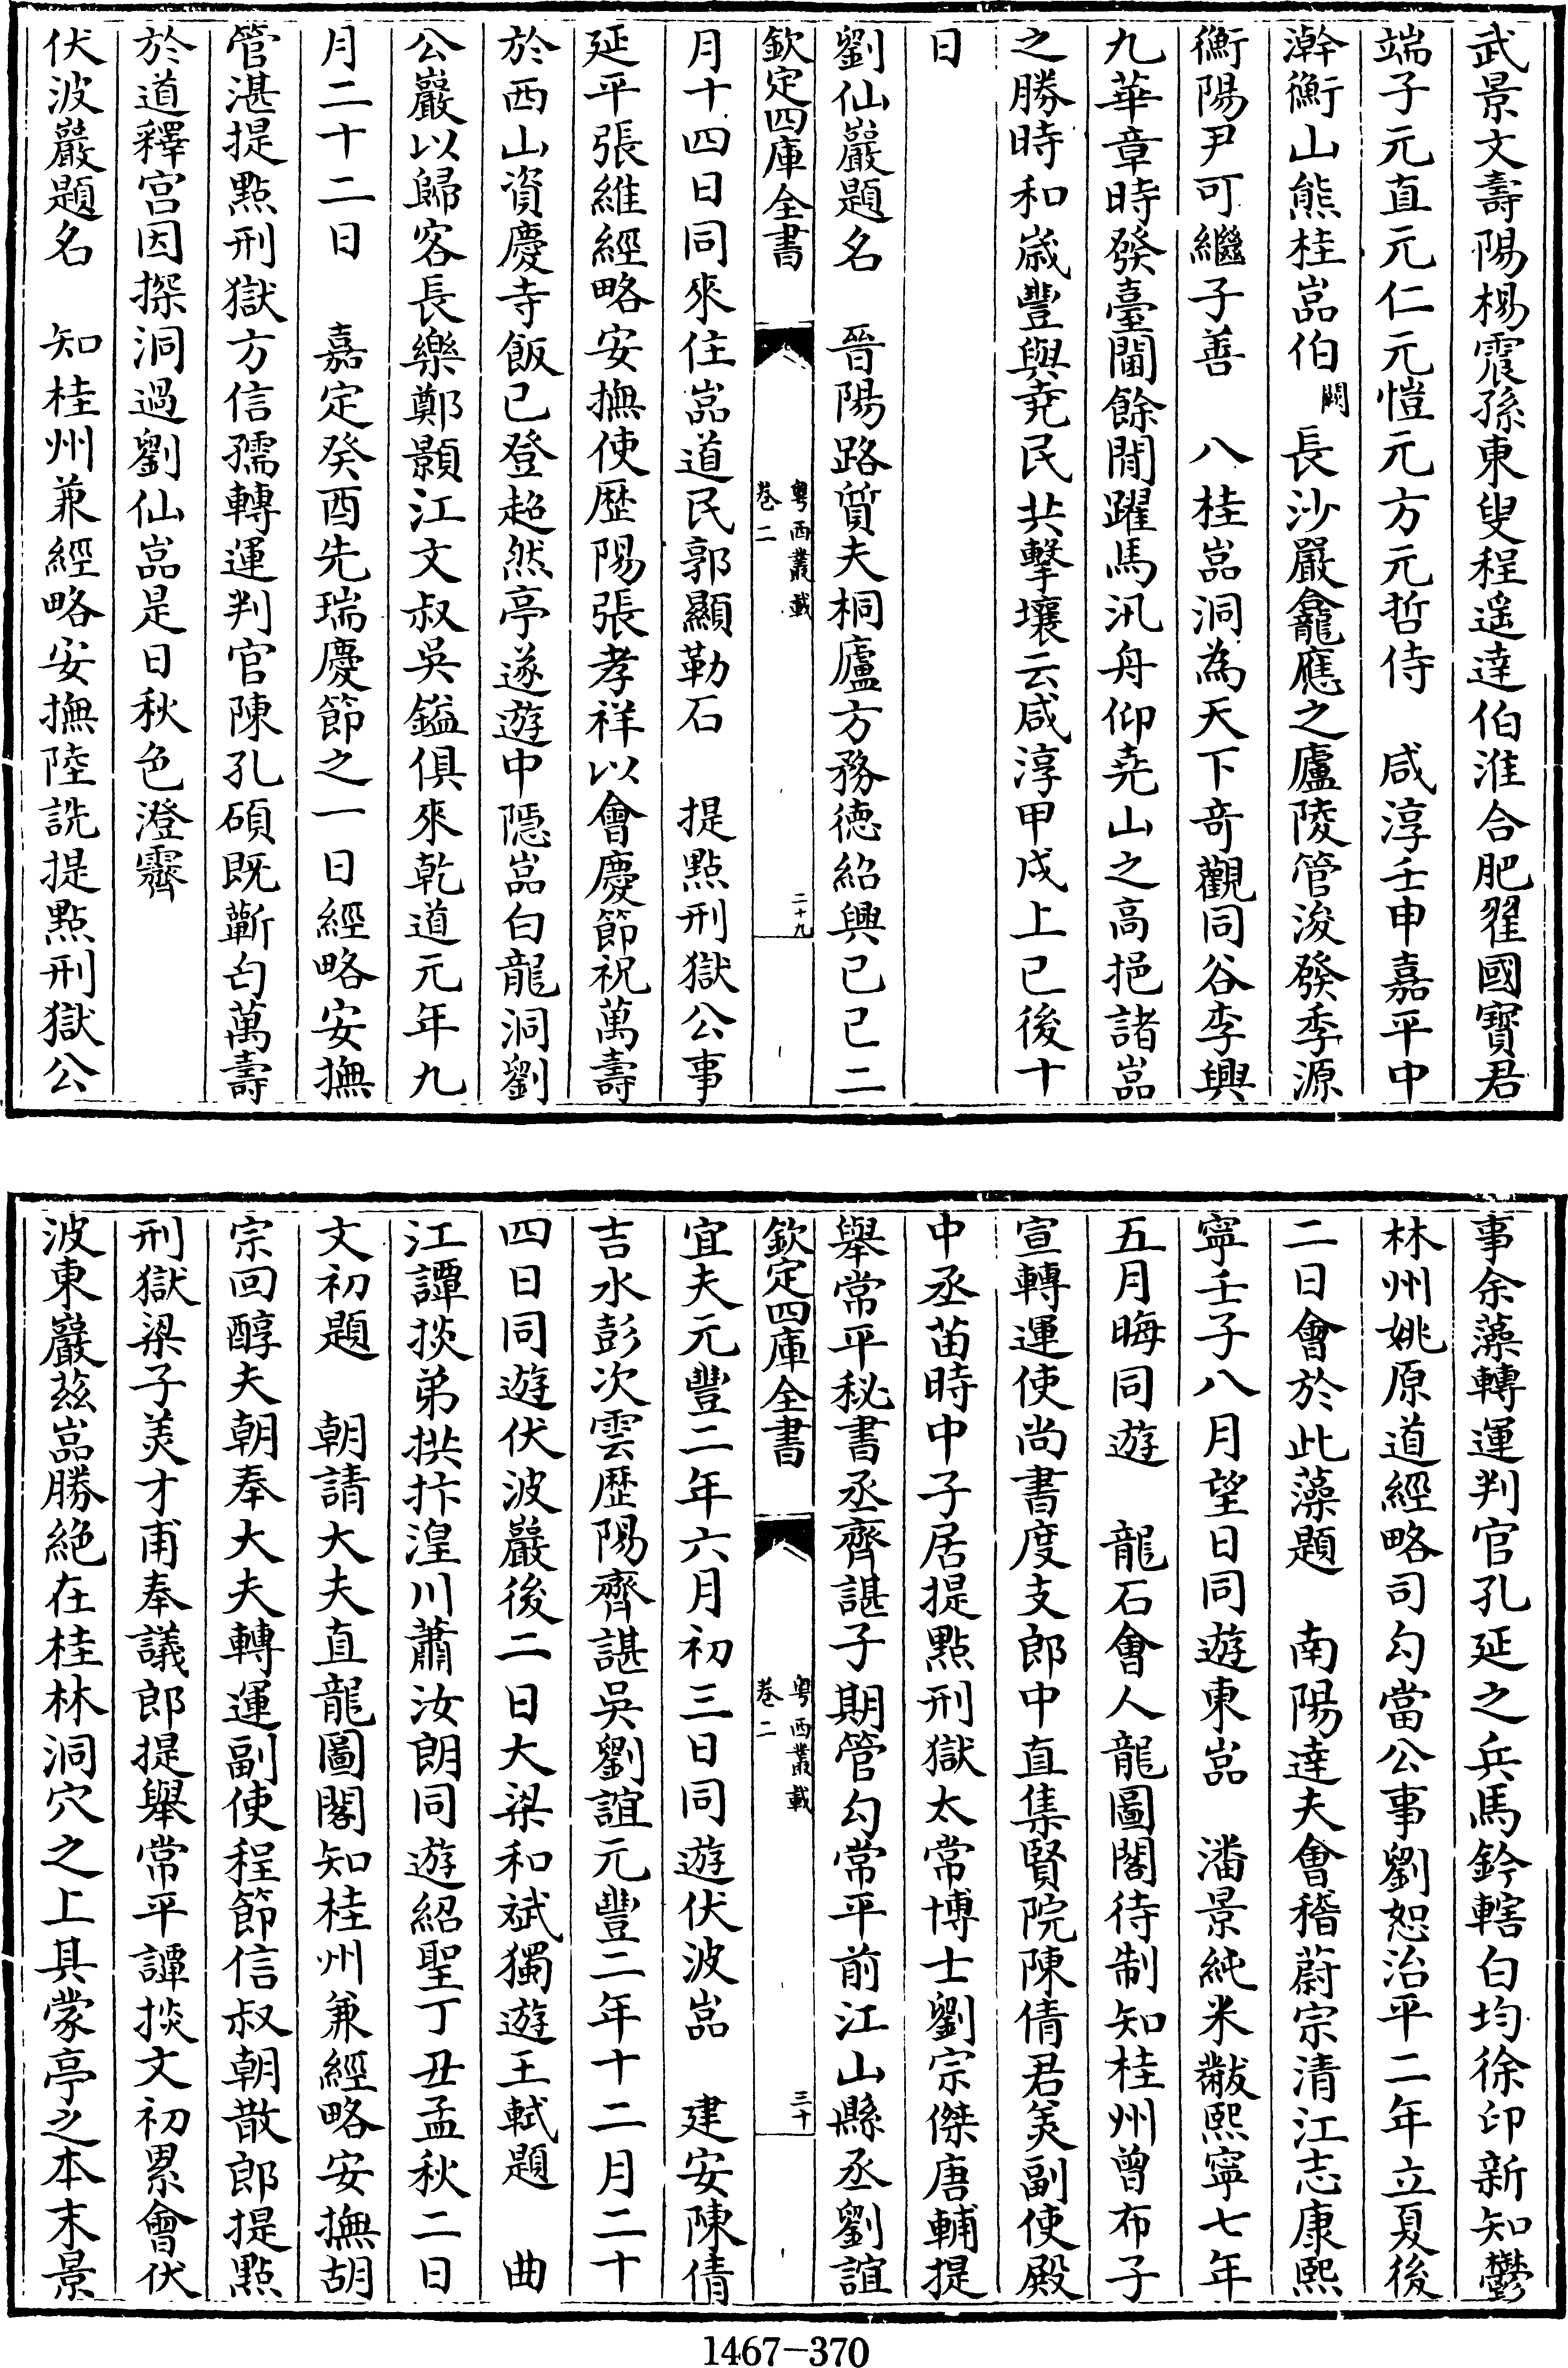 武景文壽陽楊震孫東叟程遥逹伯淮合肥翟國寳君
端子元直元仁元愷元方元哲侍　咸淳壬申嘉平中
澣衡山熊桂嵓伯闕長沙嚴龕應之廬陵管浚發季源
衡陽尹可繼子善　八桂嵓洞為天下竒觀同谷李興
九華章時發臺閫餘閒躍馬汎舟仰堯山之高挹諸嵓
之勝時和嵗豐與堯民共擊壤云咸淳甲戌上已後十
日
劉仙巖題名　晉陽路質夫桐廬方務徳紹興己巳二
欽定四庫全書　粤西叢載　卷二　二十九
月十四日同來住嵓道民郭顯勒石　提點刑獄公事
延平張維經略安撫使歴陽張孝祥以會慶節祝萬壽
於西山資慶寺飯已登超然亭遂遊中隱嵓白龍洞劉
公巖以歸客長樂鄭顥江文叔吳鎰俱來乾道元年九
月二十二日　嘉定癸酉先瑞慶節之一日經略安撫
管湛提點刑獄方信孺轉運判官陳孔碩既蘄匄萬壽
於道釋宫因探洞過劉仙嵓是日秋色澄霽
伏波巖題名　知桂州兼經略安撫陸詵提點刑獄公
事余藻轉運判官孔延之兵馬鈐轄白均徐印新知鬱
林州姚原道經略司勾當公事劉恕治平二年立夏後
二日會於此藻題　南陽逹夫會稽蔚宗清江志康熙
寧壬子八月望日同遊東嵓　潘景純米黻熙寧七年
五月晦同遊　龍石會人龍圖閣待制知桂州曽布子
宣轉運使尚書度支郎中直集賢院陳倩君美副使殿
中丞苗時中子居提點刑獄太常博士劉宗傑唐輔提
舉常平秘書丞齊諶子期管勾常平前江山縣丞劉誼
欽定四庫全書　粤西叢載　卷二　三十
宜夫元豐二年六月初三日同遊伏波嵓　建安陳倩
吉水彭次雲歴陽齊諶吳劉誼元豐二年十二月二十
四日同遊伏波巖後二日大梁和斌獨遊王軾題　曲
江譚掞弟拱抃湟川蕭汝朗同遊紹聖丁丑孟秋二日
文初題　朝請大夫直龍圖閣知桂州兼經略安撫胡
宗回醇夫朝奉大夫轉運副使程節信叔朝散郎提點
刑獄梁子美才甫奉議郎提舉常平譚掞文初累會伏
波東巖兹嵓勝絶在桂林洞穴之上具蒙亭之本末景
1467-370